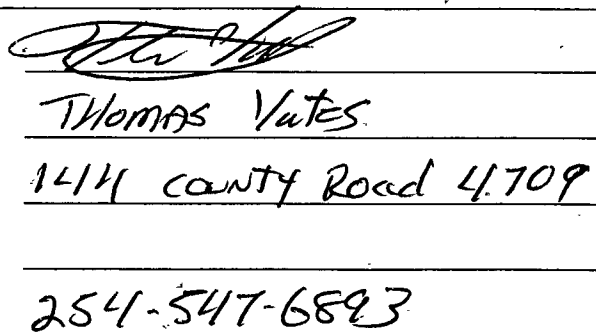 THOMAS Yates
1414 COUNTY Road 4709
254-547-6893